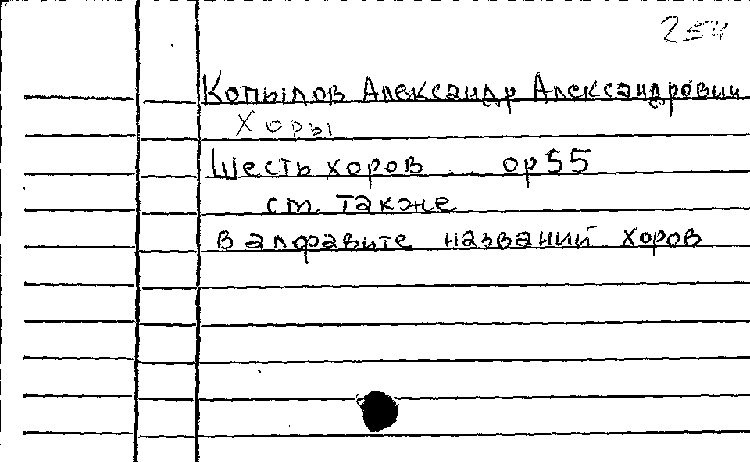 254
Копылов Александр Александрович
Хоры
Шесть хоров ор 55
ст. также
в алфавите названий хоров